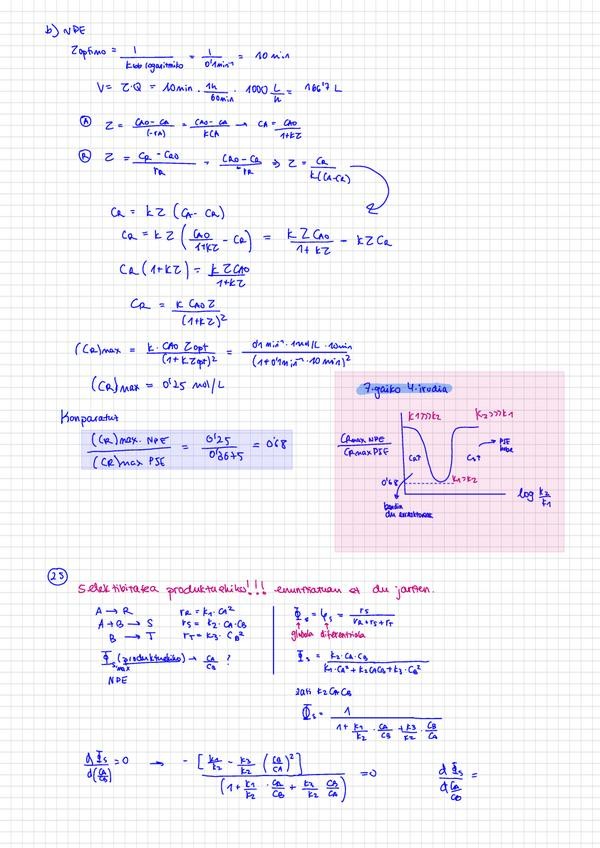 b) NPE
Zoptimo = 1 / K batb logaritmiko = 1 / 0'1min⁻¹ = 10 min
V = Z·Q = 10min · 1h/60min · 1000 L/h = 166'7 L
(A) Z = CAO - CA / (-rA) = CAO - CA / KCA → CA = CAO / 1+KZ
(R) Z = CR - CRO / rR = CRO - CR / -rR ⇒ Z = CR / K(CA-CR)
CR = KZ (CA - CR)
CR = KZ (CAO / 1+KZ - CR) = KZCAO / 1+KZ - KZCR
CR (1+KZ) = KZCAO / 1+KZ
CR = K CAO Z / (1+KZ)²
(CR)max = K·CAO Zopt / (1+KZopt)² = 0'1 min⁻¹ · 1mol/L · 10min / (1+0'1min⁻¹·10 min)²
(CR)max = 0'25 mol/L
Konparatuz
(CR)max. NPE / (CR)max PSE = 0'25 / 0'3645 = 0'68
7.gaiko 4.irudia
K1>>>K2
K2>>>K1
CRmax NPE / CRmax PSE
CR↑
CS↑
PSE hobe
0'68
K1>K2
berdin du erreaktoreak
log K2/K1
25
Selektibitatea produktuekiko!!! enuntziatuan ez du jartzen.
A → R rR = K1·CA²
A+B → S rS = K2·CA·CB
B → T rT = K3·CB²
Φs,max (produktuekiko) → CA/CB ?
NPE
Φs = φs = rS / rR+rS+rT
globala diferentziala
Φs = K2·CA·CB / K1·CA² + K2CACB + K3·CB²
zati K2CACB
Φs = 1 / 1 + K1/K2 · CA/CB + K3/K2 · CB/CA
dΦs / d(CA/CB) = 0 → - [K1/K2 - K3/K2 (CB/CA)²] / (1 + K1/K2 · CA/CB + K3/K2 CB/CA) = 0
dΦs / d CA/CB =